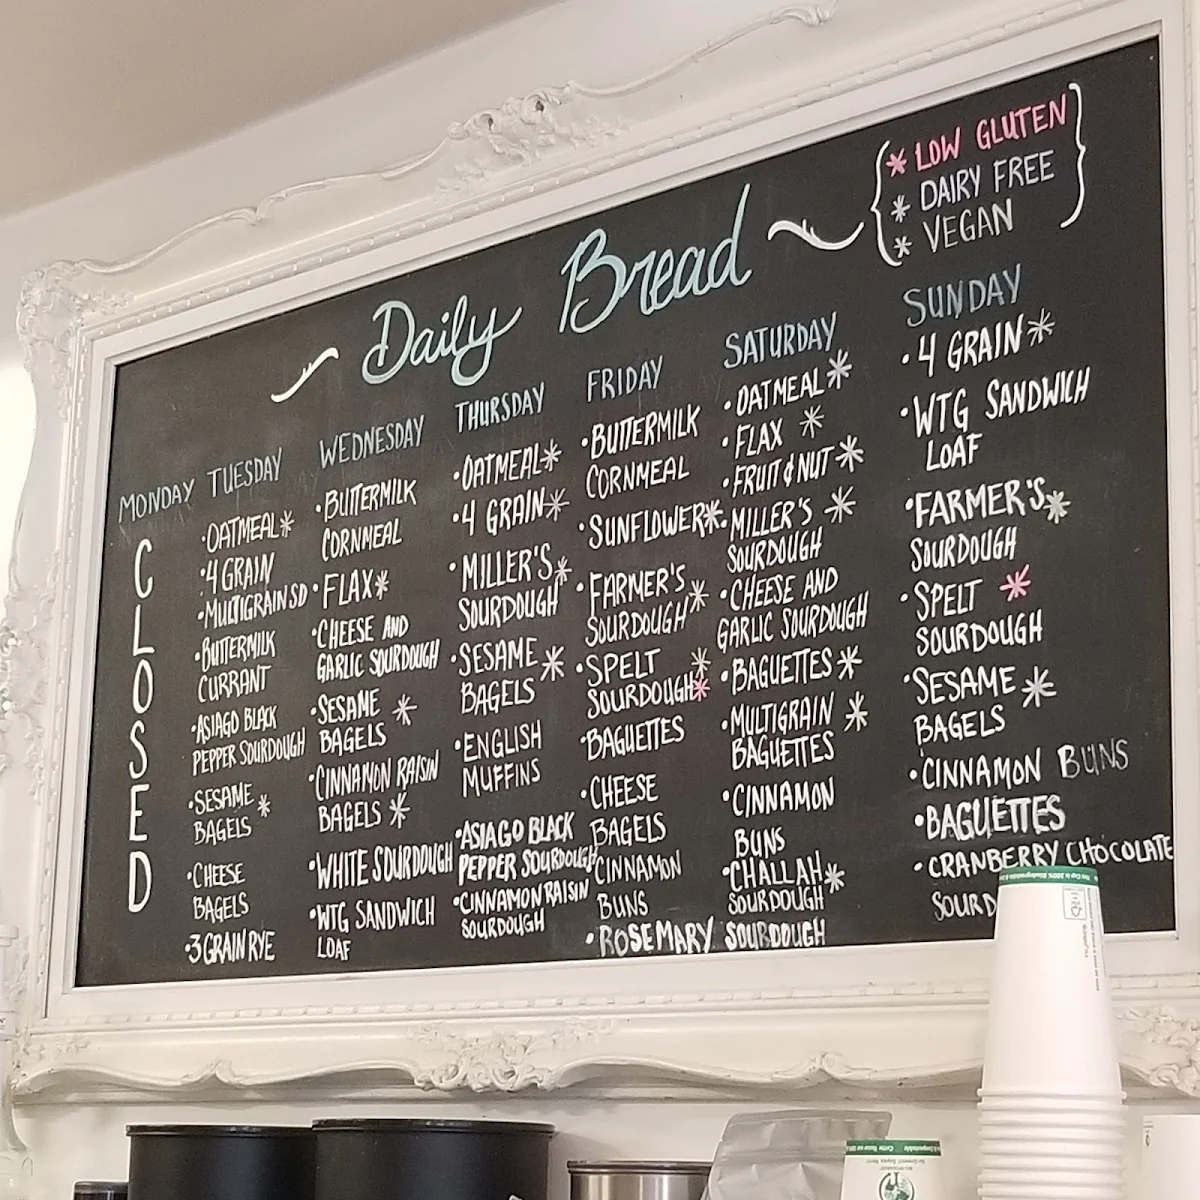 * LOW GLUTEN
* DAIRY FREE
* VEGAN
Daily Bread
MONDAY
C
L
O
S
E
D
TUESDAY
·OATMEAL*
·4 GRAIN
·MULTIGRAIN SD
·BUTTERMILK
CURRANT
·ASIAGO BLACK
PEPPER SOURDOUGH
·SESAME *
BAGELS
·CHEESE
BAGELS
·3 GRAIN RYE
WEDNESDAY
·BUTTERMILK
CORNMEAL
·FLAX*
·CHEESE AND
GARLIC SOURDOUGH
·SESAME *
BAGELS
·CINNAMON RAISIN
BAGELS *
·WHITE SOURDOUGH
·WTG SANDWICH
LOAF
THURSDAY
·OATMEAL*
·4 GRAIN*
·MILLER'S *
SOURDOUGH
·SESAME *
BAGELS
·ENGLISH
MUFFINS
·ASIAGO BLACK
PEPPER SOURDOUGH
·CINNAMON RAISIN
SOURDOUGH
FRIDAY
·BUTTERMILK
CORNMEAL
·SUNFLOWER*
·FARMER'S *
SOURDOUGH
·SPELT *
SOURDOUGH*
·BAGUETTES
·CHEESE
BAGELS
·CINNAMON
BUNS
·ROSEMARY SOURDOUGH
SATURDAY
·OATMEAL *
·FLAX *
·FRUIT & NUT *
·MILLER'S *
SOURDOUGH
·CHEESE AND
GARLIC SOURDOUGH
·BAGUETTES *
·MULTIGRAIN *
BAGUETTES
·CINNAMON
BUNS
·CHALLAH *
SOURDOUGH
SUNDAY
·4 GRAIN *
·WTG SANDWICH
LOAF
·FARMER'S *
SOURDOUGH
·SPELT *
SOURDOUGH
·SESAME *
BAGELS
·CINNAMON BUNS
·BAGUETTES
·CRANBERRY CHOCOLATE
SOURD